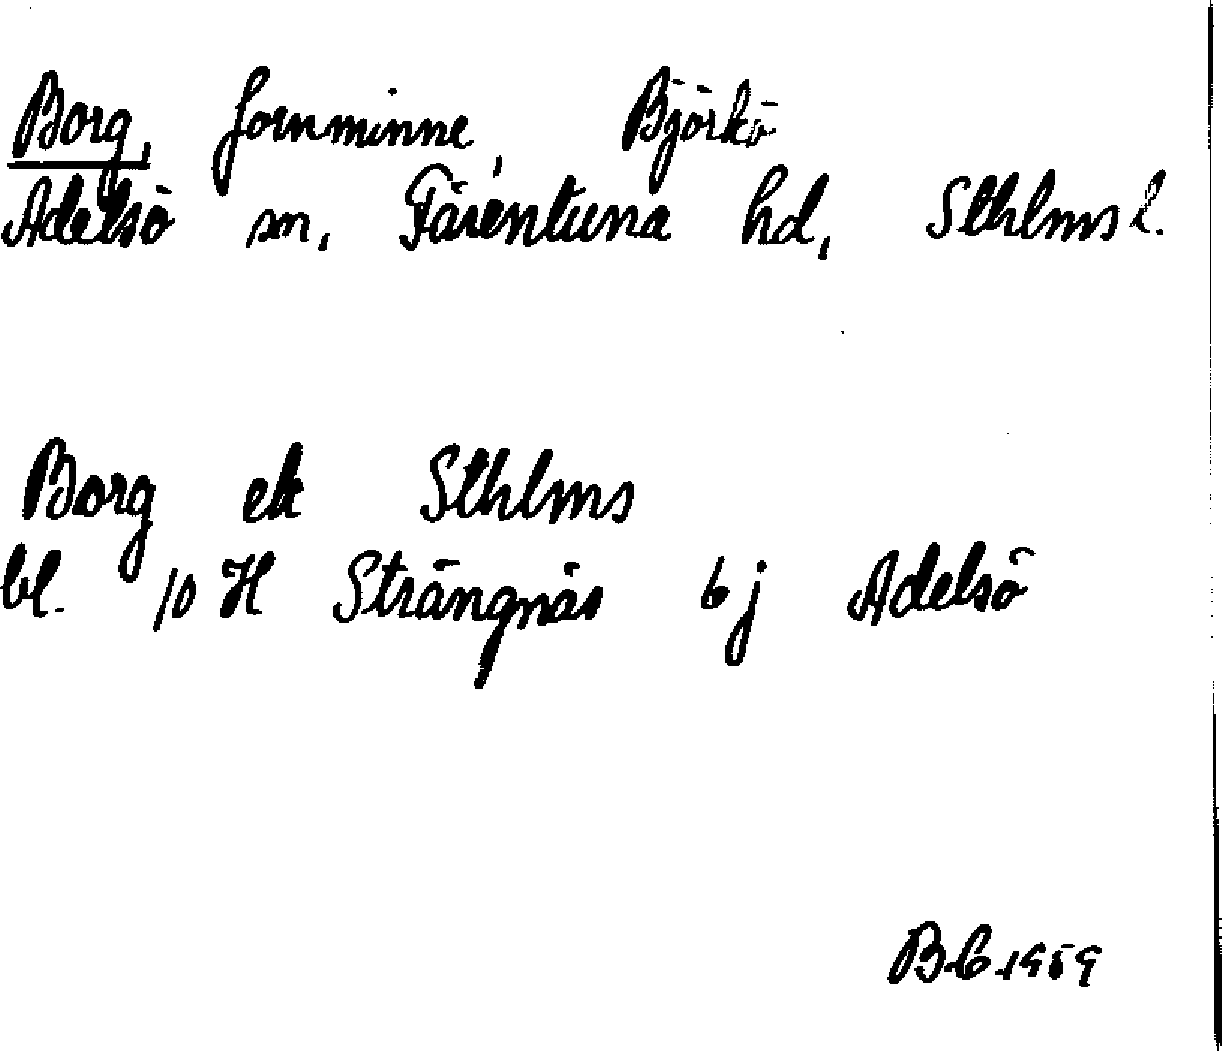 Borg, fornminne, Björkö
Adelsö sn, Färentuna hd, Sthlms l.
Borg ek Sthlms
bl. 10 H Strängnäs 6 j Adelsö
B.C. 1959